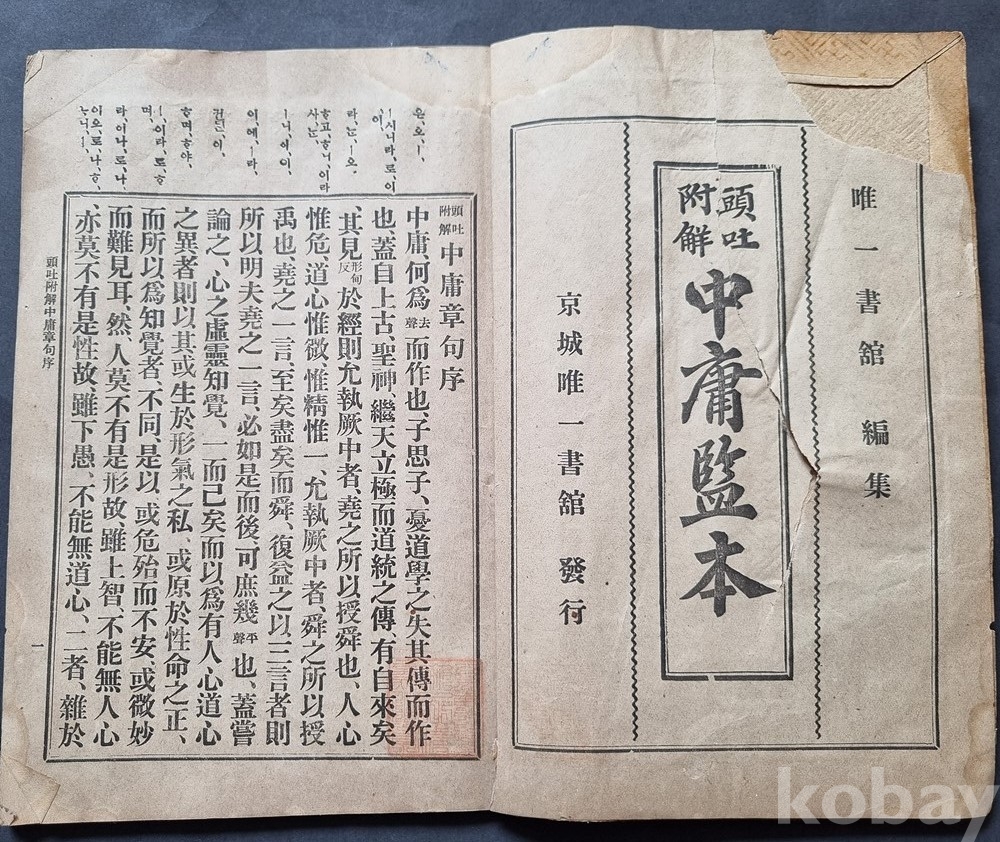 唯一書舘 編集
頭吐
附解
中庸監本
京城唯一書舘 發行
은、오、ㅣ、
ㅣ시니라、로、이
이、
라、는ㅣ오、
ᄒᆞ고、ᄒᆞ니、이라
사、는
ㅣ니、이、이、
이、에、ㅣ라、
ᄒᆞ며、ᄒᆞ야、
ㅣ、이라、로、ᄒᆞ
며、
라、이나、로、나
이오、로、나、ᄒᆞ、
頭吐附解 中庸章句序
中庸、何爲去聲而作也、子思子、憂道學之失其傳而作
也、蓋自上古、聖神、繼天立極而道統之傳、有自來矣
、其見形甸反於經則允執厥中者、堯之所以授舜也、人心
惟危、道心惟微、惟精惟一、允執厥中者、舜之所以授
禹也、堯之一言、至矣盡矣而舜、復益之以三言者則
所以明夫堯之一言、必如是而後、可庶幾平聲也、蓋嘗
論之、心之虛靈知覺、一而已矣而以爲有人心道心
之異者則以其或生於形氣之私、或原於性命之正、
而所以爲知覺者、不同、是以、或危殆而不安、或微妙
而難見耳、然、人莫不有是形故、雖上智、不能無人心
、亦莫不有是性故、雖下愚、不能無道心、二者、雜於
頭吐附解中庸章句序
一
kobay